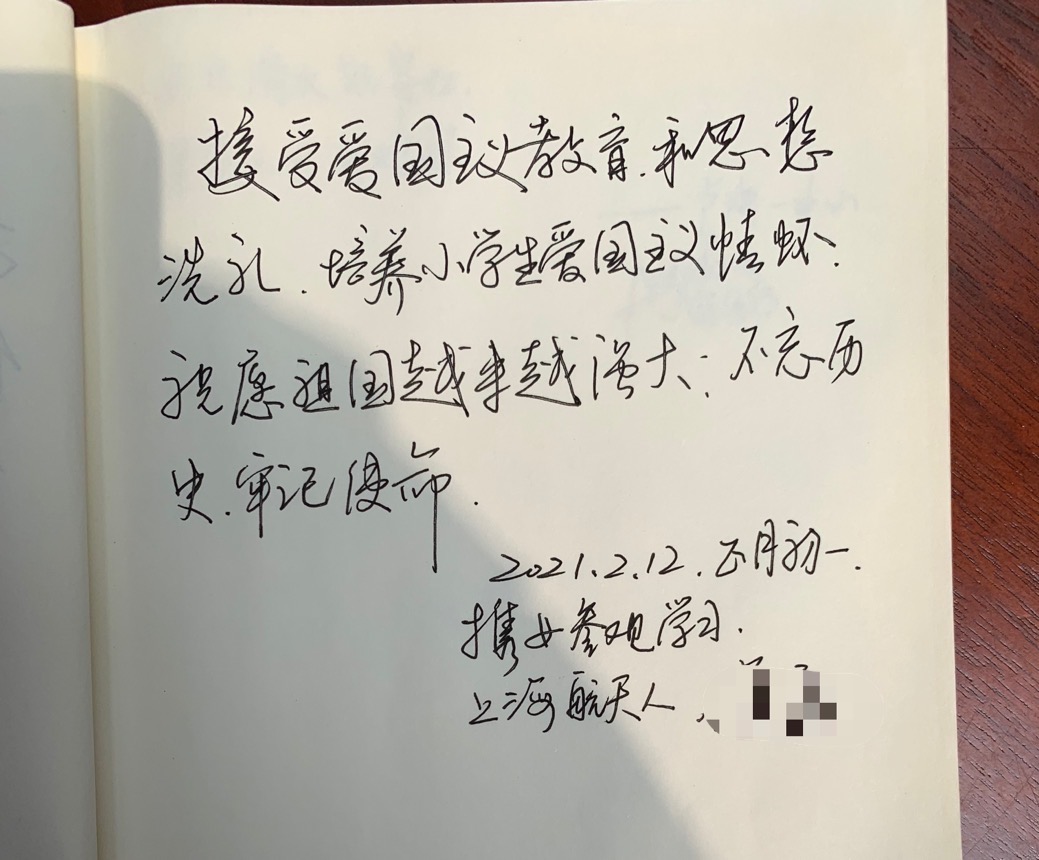 接受爱国主义教育.和思想
洗礼.培养小学生爱国主义情怀.
祝愿祖国越来越强大;不忘历
史.牢记使命.
2021.2.12.正月初一.
携女参观学习.
上海航天人,